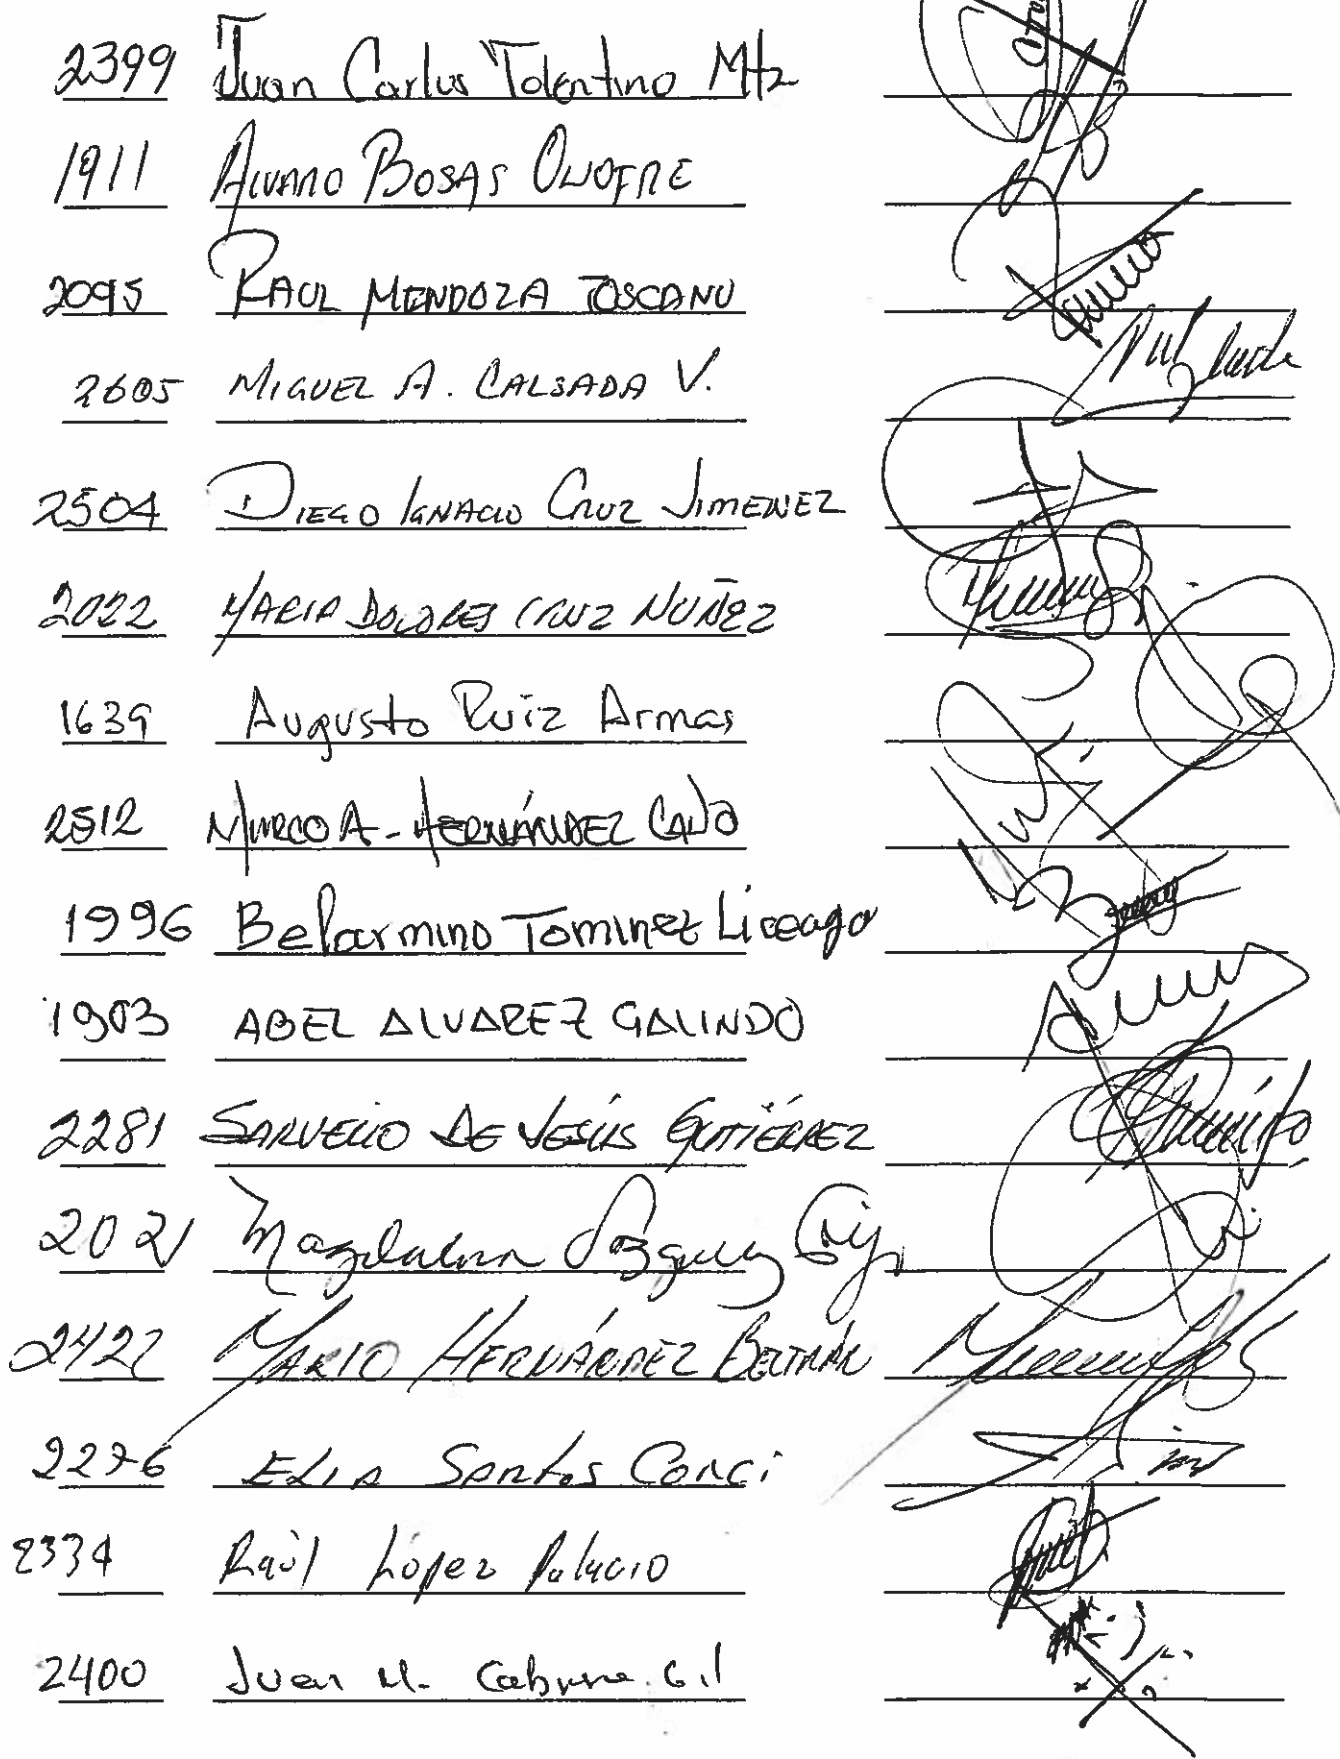 2399 Juan Carlos Tolentino Mtz
1911 Alvaro Bosas Onofre
2095 RAUL MENDOZA TOSCANO
2605 MIGUEL A. CALSADA V.
2504 DIEGO IGNACIO CRUZ JIMENEZ
2022 MARIA DOLORES CRUZ NUÑEZ
1639 Augusto Ruiz Armas
2512 MARCO A. HERNÁNDEZ CANO
1996 Belarmino Tominez Liceaga
1903 ABEL ALVAREZ GALINDO
2281 SARVELIO DE JESÚS GUTIÉRREZ
2021 Magdalena
2422 MARIO HERNÁNDEZ BELTRÁN
2276 ELIA Santos
2334 Raúl López Palacio
2400 Juan M. Cabrera Gil